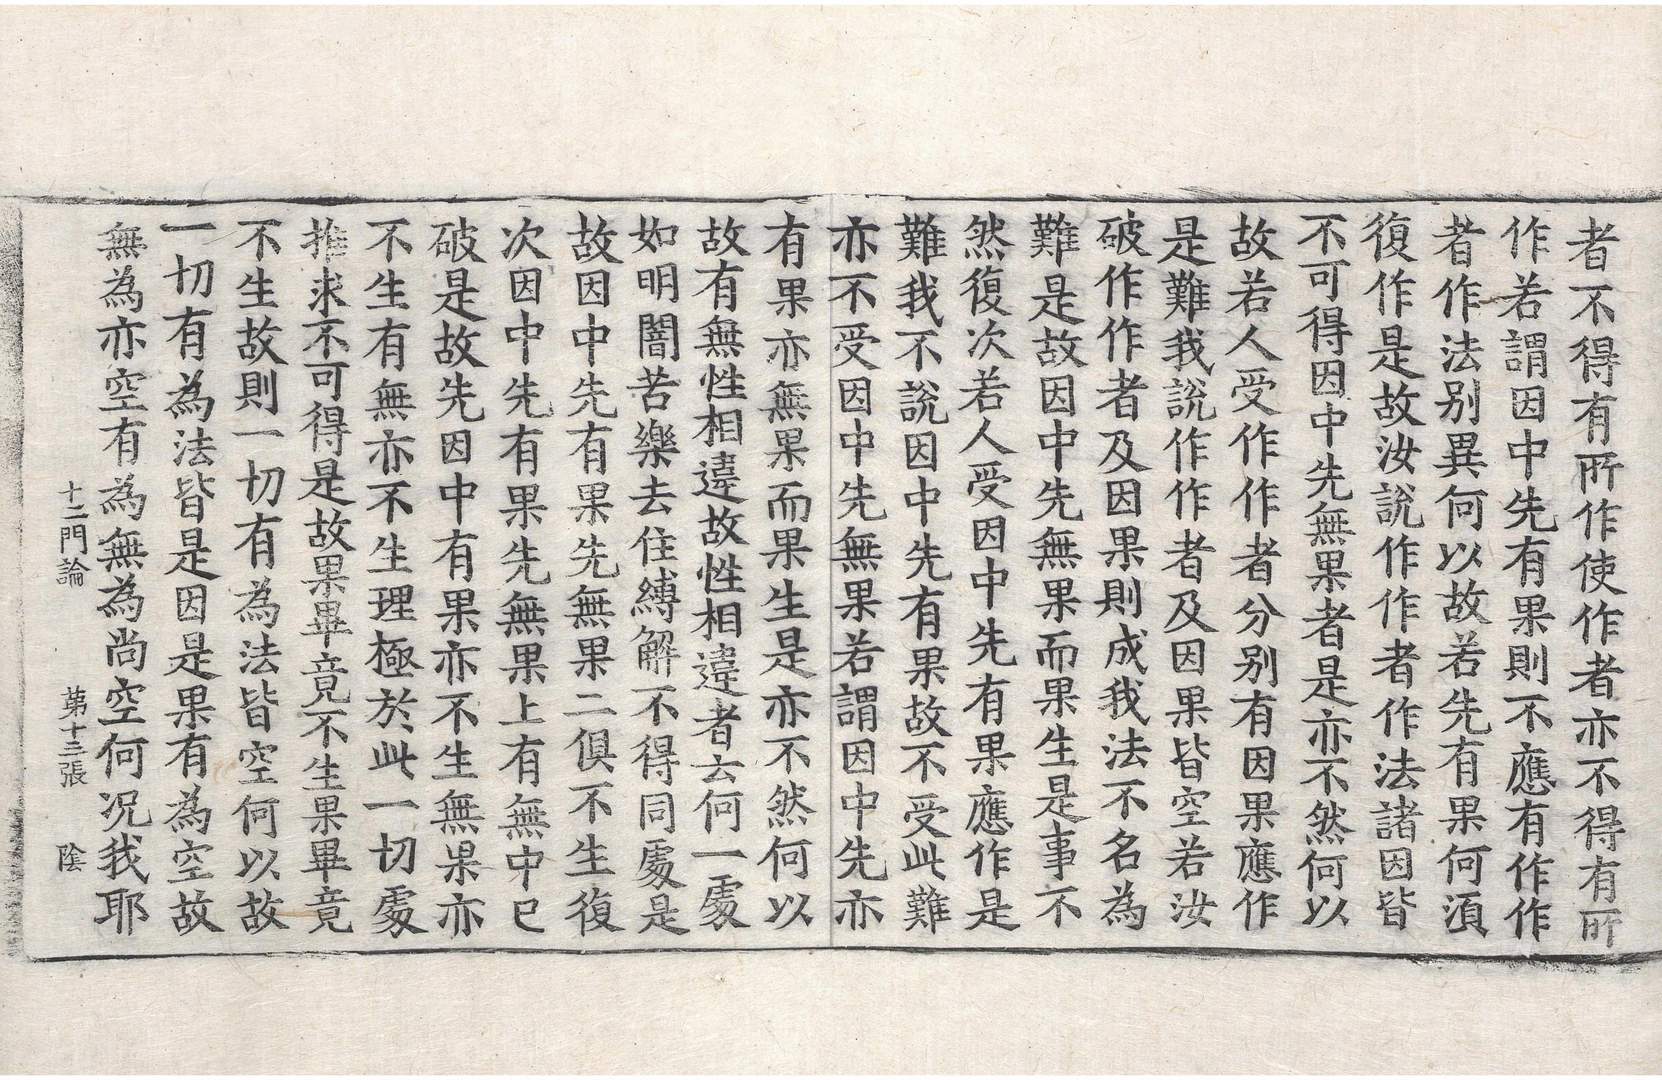 者不得有所作使作者亦不得有所
作若謂因中先有果則不應有作作
者作法別異何以故若先有果何湏
復作是故汝說作作者作法諸因皆
不可得因中先無果者是亦不然何以
故若人受作作者分別有因果應作
是難我說作作者及因果皆空若汝
破作作者及因果則成我法不名為
難是故因中先無果而果生是事不
然復次若人受因中先有果應作是
難我不說因中先有果故不受此難
亦不受因中先無果若謂因中先亦
有果亦無果而果生是亦不然何以
故有無性相違故性相違者云何一處
如明闇苦樂去住縛解不得同處是
故因中先有果先無果二俱不生復
次因中先有果先無果上有無中已
破是故先因中有果亦不生無果亦
不生有無亦不生理極於此一切處
推求不可得是故果畢竟不生果畢竟
不生故則一切有為法皆空何以故
一切有為法皆是因是果有為空故
無為亦空有為無為尚空何况我耶
十二門論 第十三張 陰